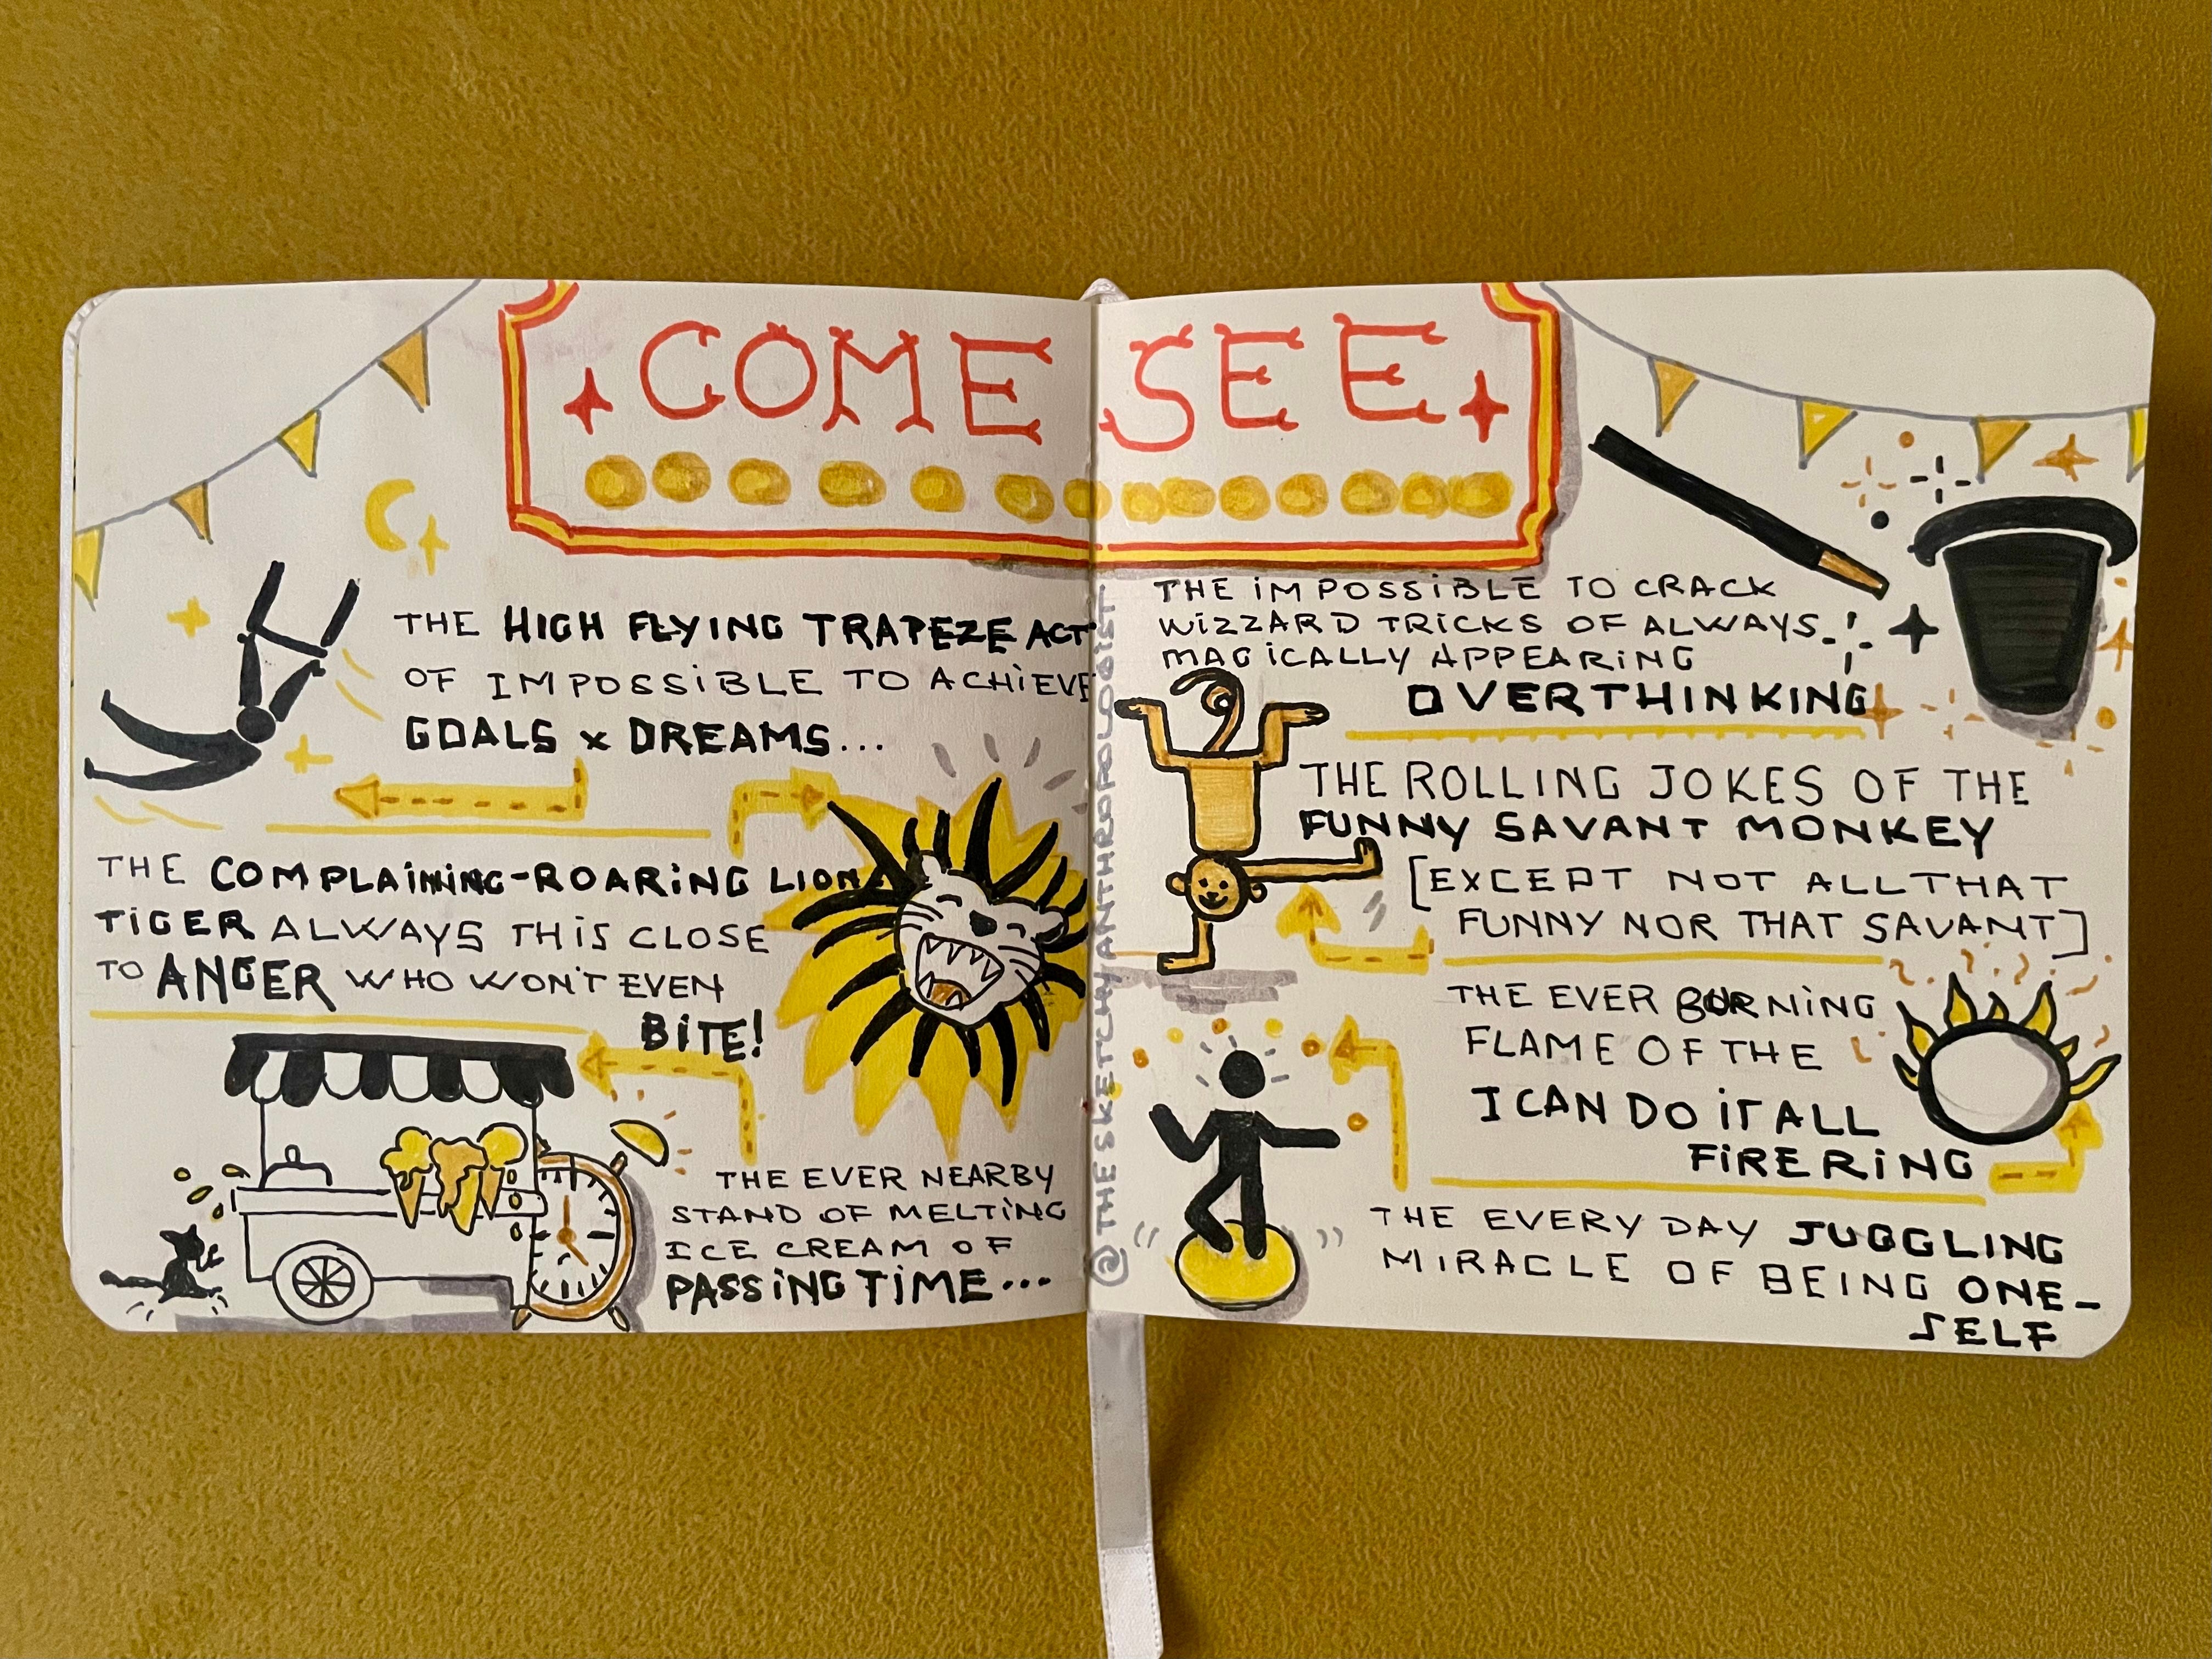 COME SEE
THE HIGH FLYING TRAPEZE ACT
OF IMPOSSIBLE TO ACHIEVE
GOALS x DREAMS...
THE COMPLAINING-ROARING LION
TIGER ALWAYS THIS CLOSE
TO ANGER WHO WON'T EVEN
BITE!
THE EVER NEARBY
STAND OF MELTING
ICE CREAM OF
PASSING TIME...
@THESKETCHYANTHROPOLOGIST
THE IMPOSSIBLE TO CRACK
WIZZARD TRICKS OF ALWAYS
MAGICALLY APPEARING
OVERTHINKING
THE ROLLING JOKES OF THE
FUNNY SAVANT MONKEY
[EXCEPT NOT ALL THAT
FUNNY NOR THAT SAVANT]
THE EVER BURNING
FLAME OF THE
I CAN DO IT ALL
FIRERING
THE EVERY DAY JUGGLING
MIRACLE OF BEING ONE-
SELF